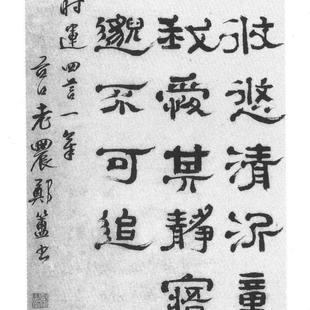 攸悠清沂童
我愛其靜寤
邈不可追
時運四言一章
谷口老農鄭簠書